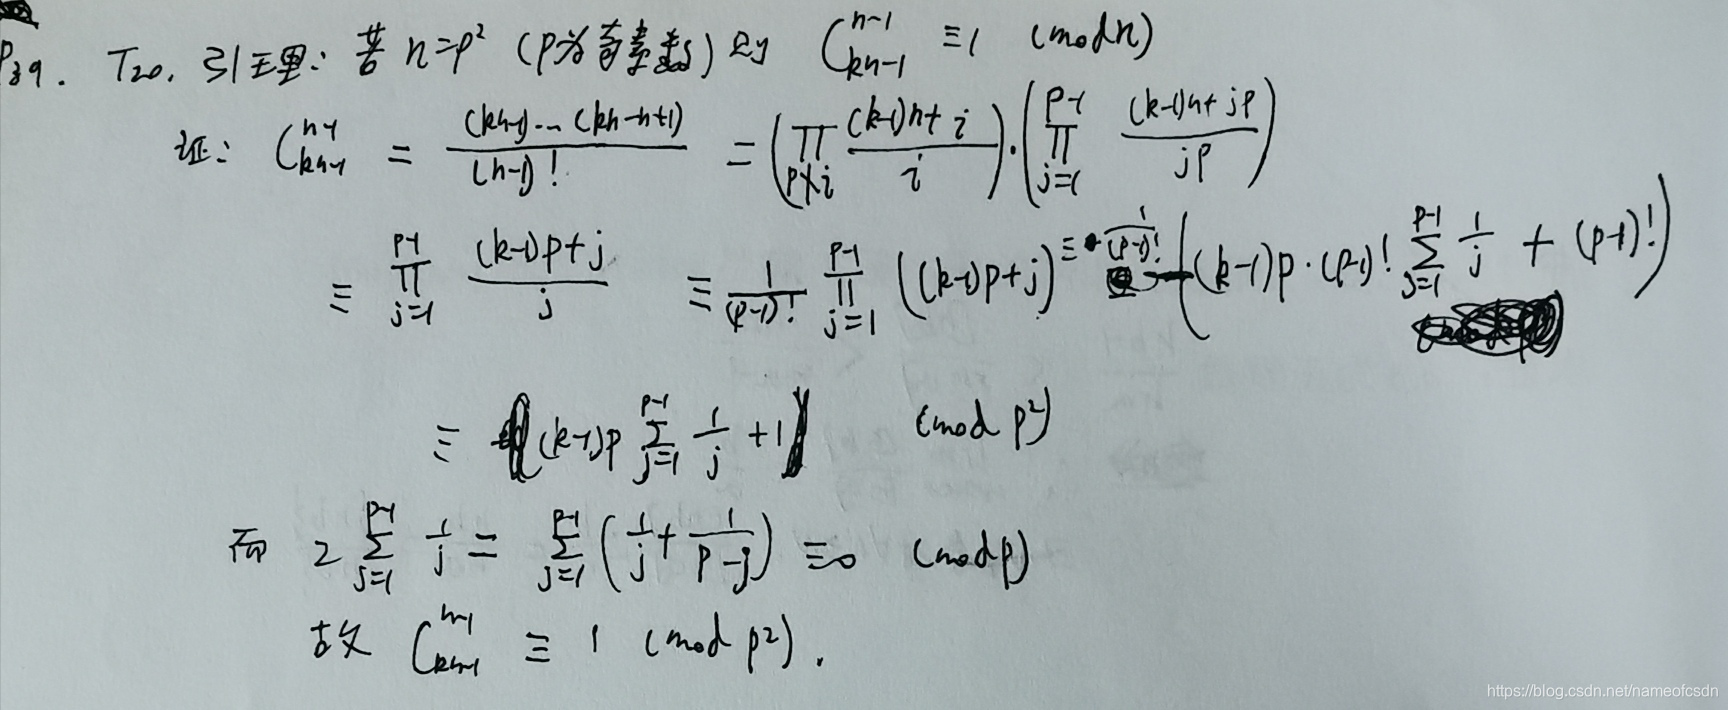 P39. T20. 引理: 若 n=p² (p为奇素数) 则 C_{kn-1}^{n-1} ≡1 (mod n)
证: C_{kn-1}^{n-1} = \frac{(kn-1)...(kn-n+1)}{(n-1)!} = (∏_{p∤i} \frac{(k-1)n+i}{i})·(∏_{j=1}^{p-1} \frac{(k-1)n+jp}{jp})
≡ ∏_{j=1}^{p-1} \frac{(k-1)p+j}{j} ≡ \frac{1}{(p-1)!} ∏_{j=1}^{p-1} ((k-1)p+j) ≡ \frac{1}{(p-1)!} ((k-1)p·(p-1)! ∑_{j=1}^{p-1} \frac{1}{j} + (p-1)!)
≡ (k-1)p ∑_{j=1}^{p-1} \frac{1}{j} +1 (mod p²)
而 2 ∑_{j=1}^{p-1} \frac{1}{j} = ∑_{j=1}^{p-1} (\frac{1}{j} + \frac{1}{p-j}) ≡0 (mod p)
故 C_{kn-1}^{n-1} ≡ 1 (mod p²).
https://blog.csdn.net/nameofcsdn